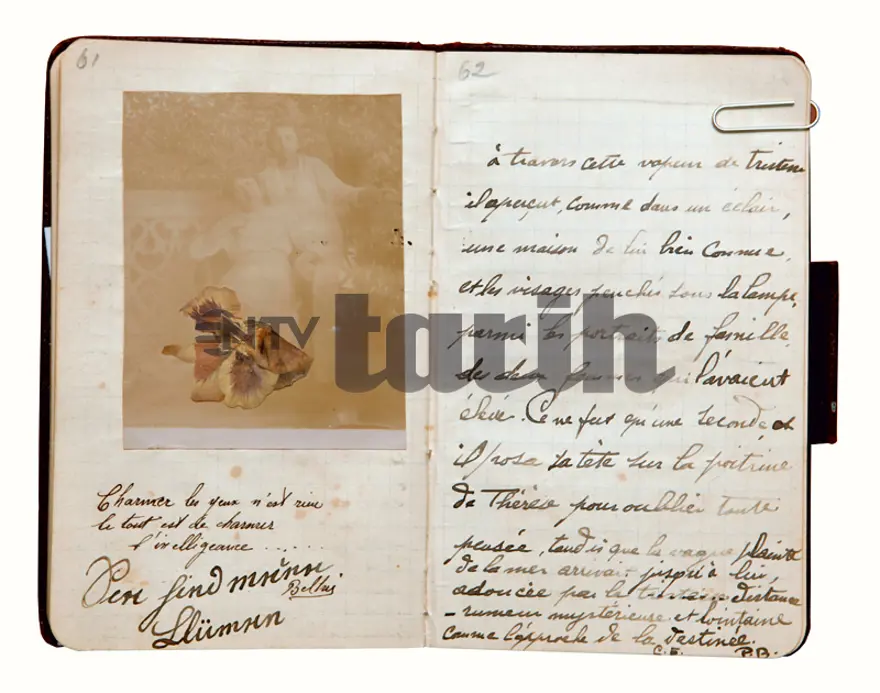 61
Charmer les yeux n'est rien
le tout est de charmer
l'intelligeance ......
Bellini
62
à travers cette vapeur de tristesse
il aperçut, comme dans un éclair,
une maison de lui bien connue,
et les visages penchés sous la lampe,
parmi les portraits de famille,
des deux femmes qui l'avaient
élevé. Ce ne fut qu'une seconde, et
il posa sa tête sur la poitrine
de Thérèse pour oublier toute
pensée, tandis que la vague plainte
de la mer arrivait jusqu'à lui,
adoucie par la distance
- rumeur mystérieuse et lointaine
comme l'approche de la destinée.
C.F. P.B.
NTV tarih